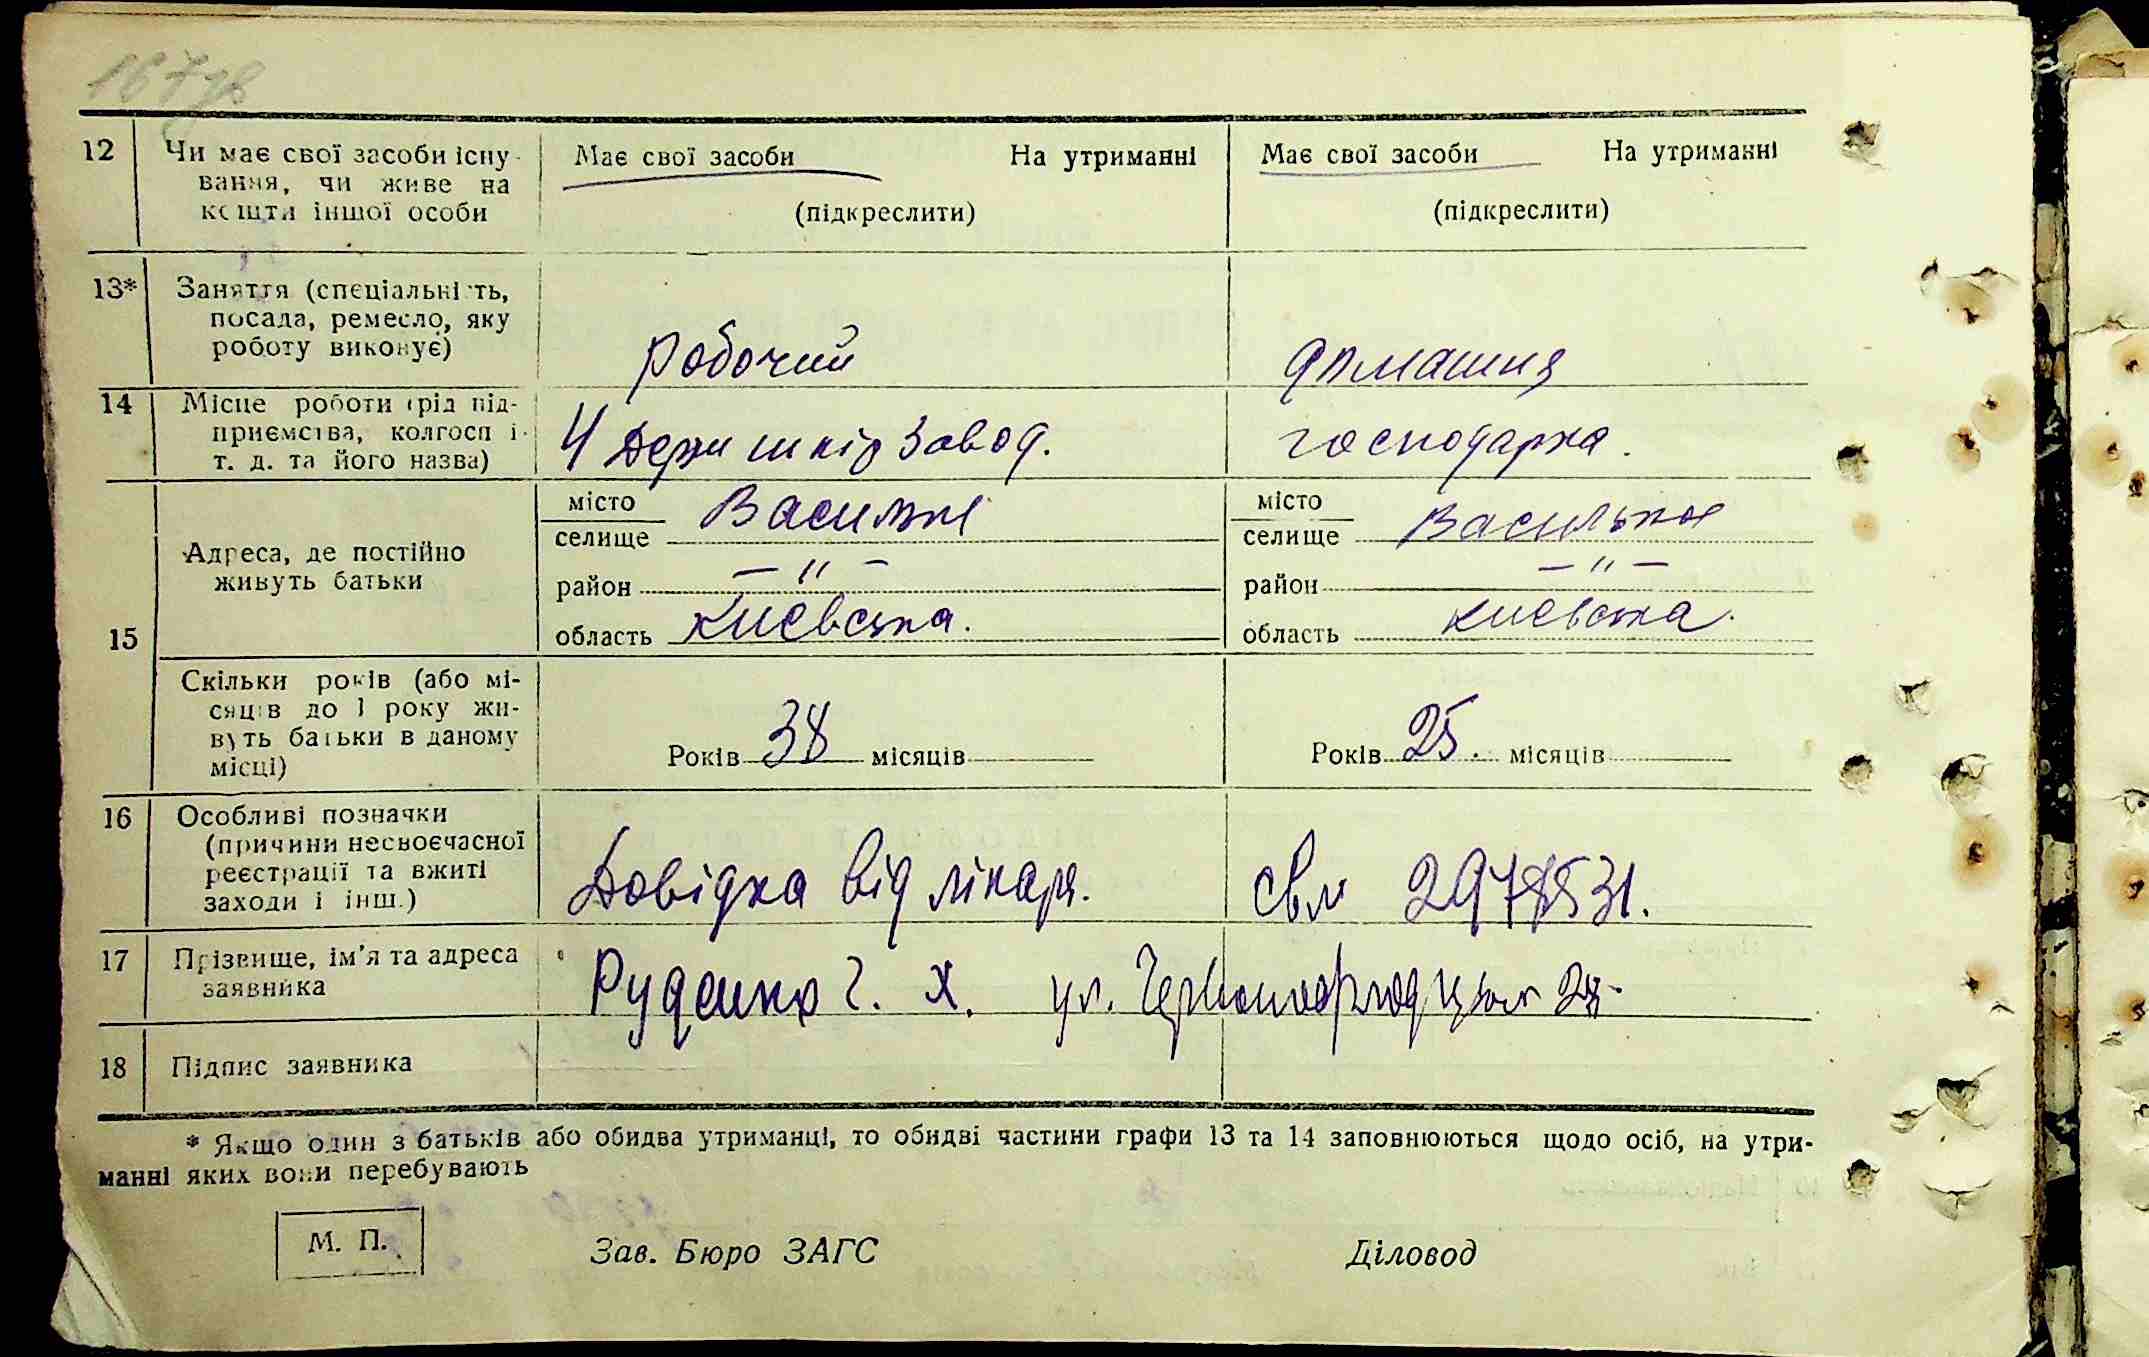 12 Чи має свої засоби існу-
вання, чи живе на
кошти іншої особи
Має свої засоби На утриманні
(підкреслити)
Має свої засоби На утриманні
(підкреслити)
13* Заняття (спеціальність,
посада, ремесло, яку
роботу виконує)
Робочий
домашня
14 Місце роботи (рід під-
приємства, колгосп і
т. д. та його назва)
4 Держ шкір завод.
господарка.
15
Адреса, де постійно
живуть батьки
місто
селище Васильків
район — " —
область Київська.
місто
селище Васильков
район — " —
область Київська.
Скільки років (або мі-
сяців до 1 року жи-
вуть батьки в даному
місці)
Років 38 місяців
Років 25. місяців
16 Особливі позначки
(причини несвоєчасної
реєстрації та вжиті
заходи і інш.)
Довідка від лікаря.
17 Прізвище, ім'я та адреса
заявника
Руденко Г. Х. ул.
18 Підпис заявника
* Якщо один з батьків або обидва утриманці, то обидві частини графи 13 та 14 заповнюються щодо осіб, на утри-
манні яких вони перебувають
М. П.
Зав. Бюро ЗАГС
Діловод